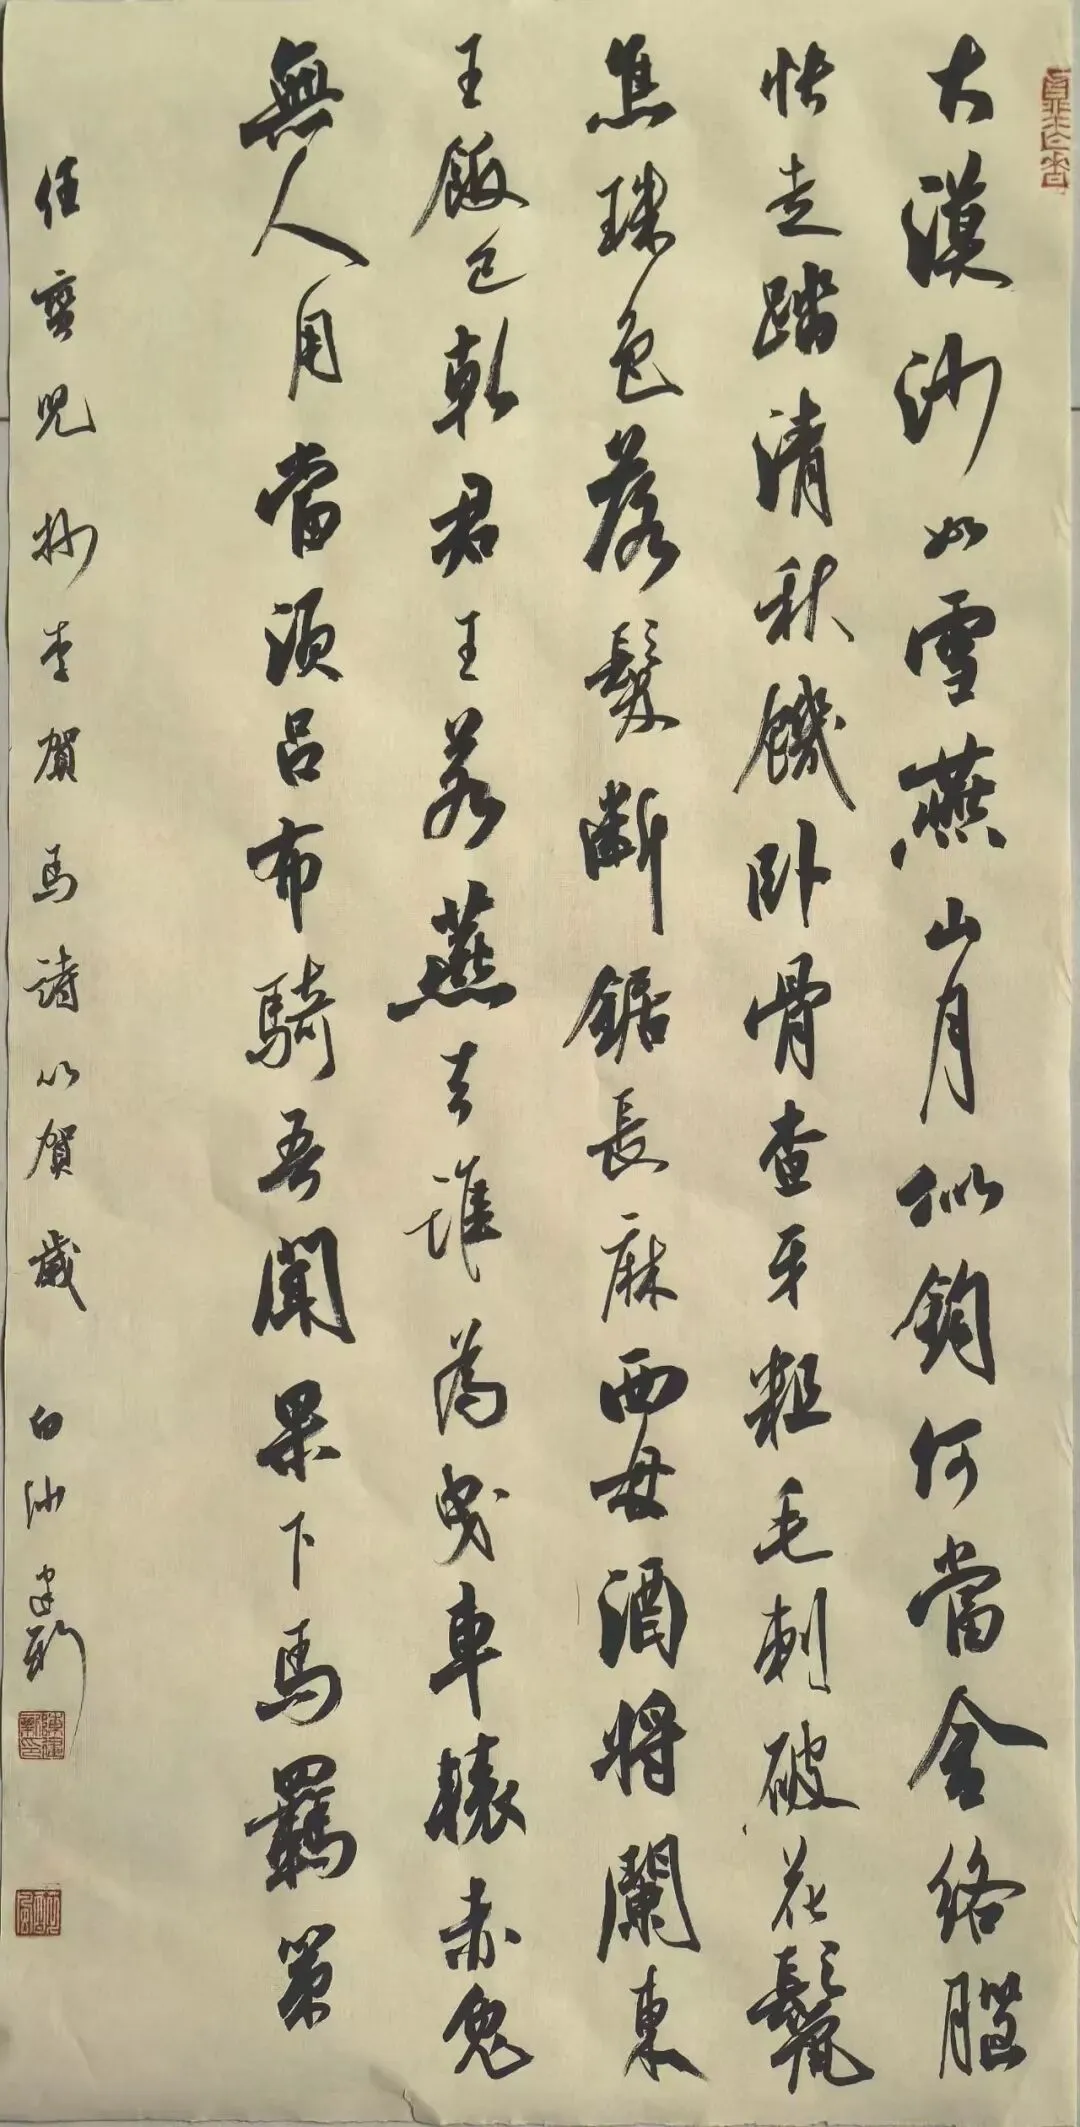 大漠沙如雪燕山月似鉤何當金絡腦
快走踏清秋饑卧骨查牙粗毛刺破花鬣
焦珠色落髮斷鋸長麻西母酒將闌東
王飯已乾君王若燕去誰為曳車轅赤兔
無人用當須呂布騎吾聞果下馬羈策
任蛮兒抄李賀馬詩以賀歲 白沙建新
陳建新印